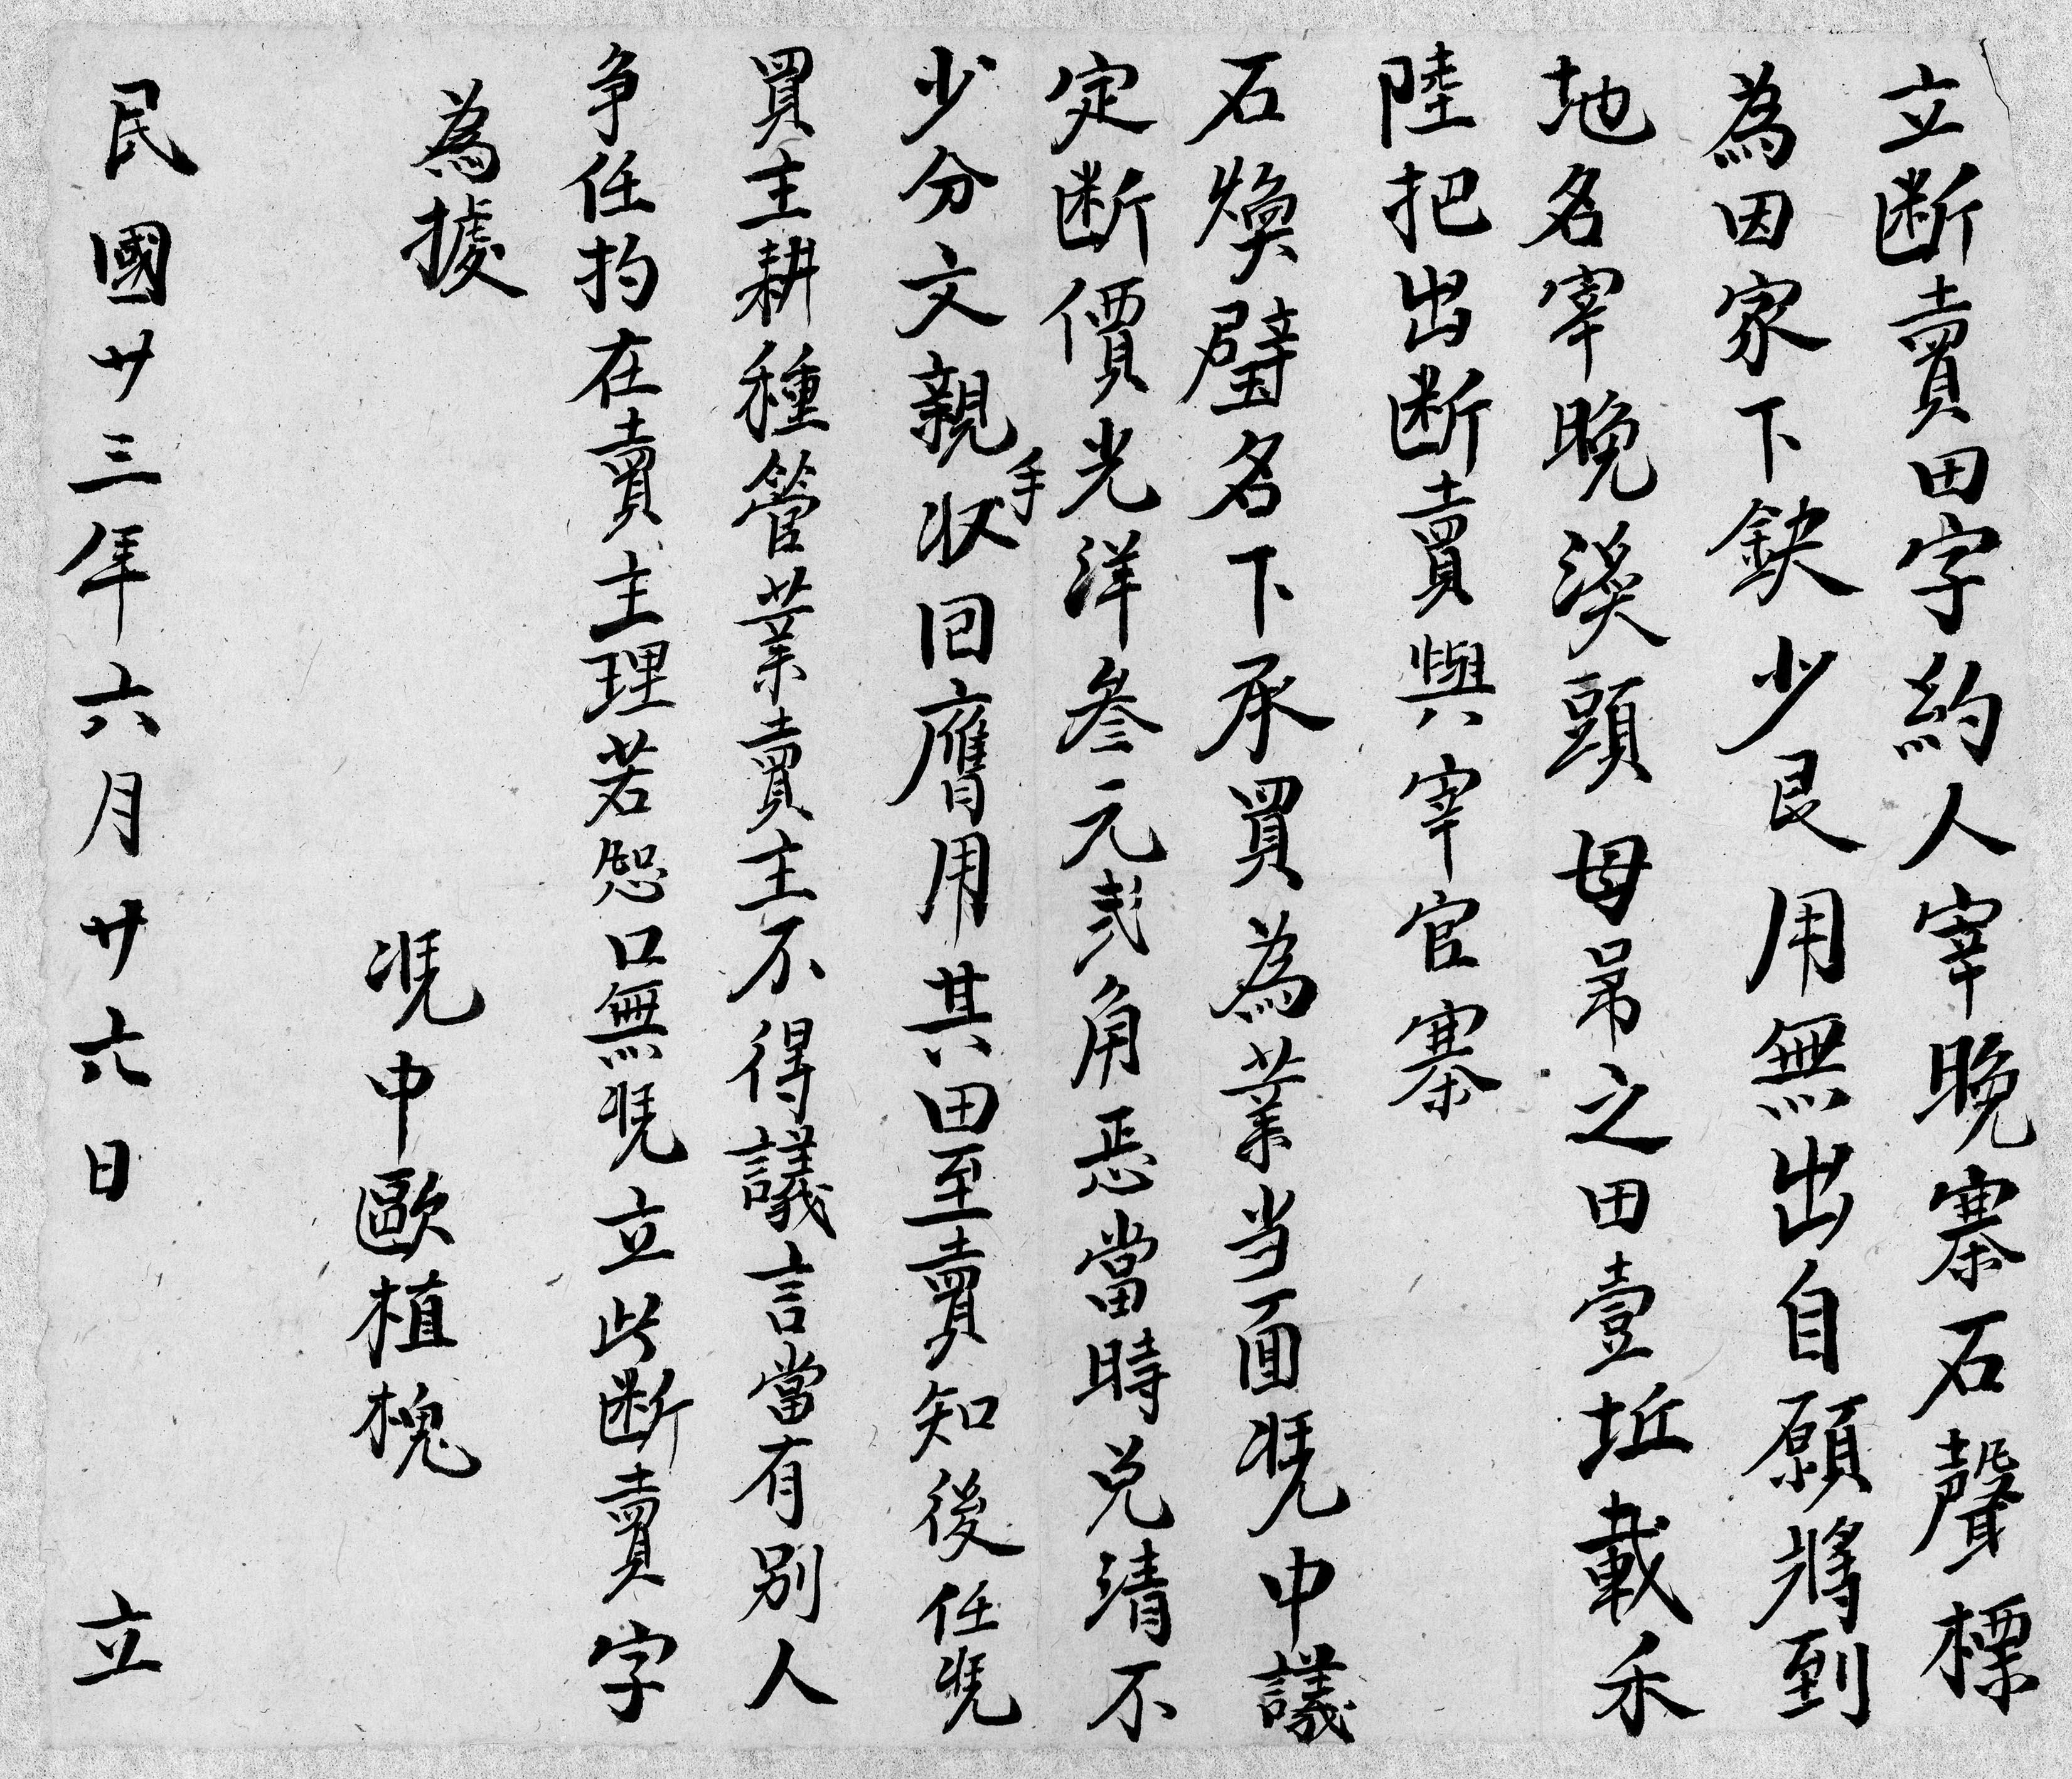 立断賣田字約人宰晚寨石聲標
為因家下缺少艮用無出自願將到
地名宰晚溪頭母吊之田壹坵載禾
陸把出断賣與宰官寨
石煥璧名下承買為業当面凴中議
定断價光洋叁元貳角悉當時兑清不
少分文親手收回應用其田至賣知後任凴
買主耕種管業賣主不得議言當有別人
争任扚在賣主理若恐口無凴立此断賣字
為據
凴中歐植槐
民國廿三年六月廿六日 立